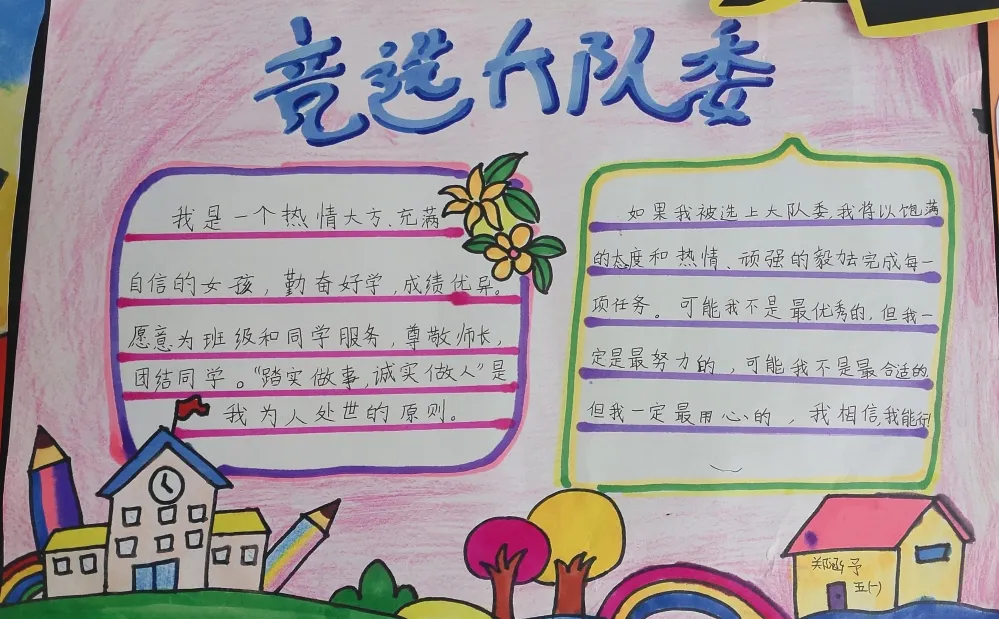 竞选大队委
我是一个热情大方、充满
自信的女孩，勤奋好学，成绩优异。
愿意为班级和同学服务，尊敬师长，
团结同学。“踏实做事，诚实做人”是
我为人处世的原则。
如果我被选上大队委，我将以饱满
的态度和热情、顽强的毅力去完成每一
项任务。可能我不是最优秀的，但我一
定是最努力的，可能我不是最合适的，
但我一定最用心的，我相信，我能行！
郑涵予
五(一)